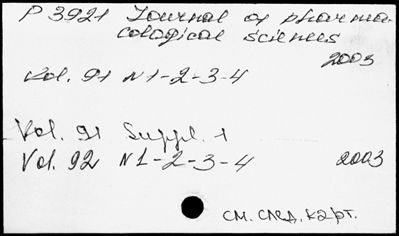 P 3921 Journal of pharma-
cological sciences
2003
Vol. 91 N 1-2-3-4
Vol. 91 Suppl. 1
Vol. 92 N 1-2-3-4 2003
см. след. карт.